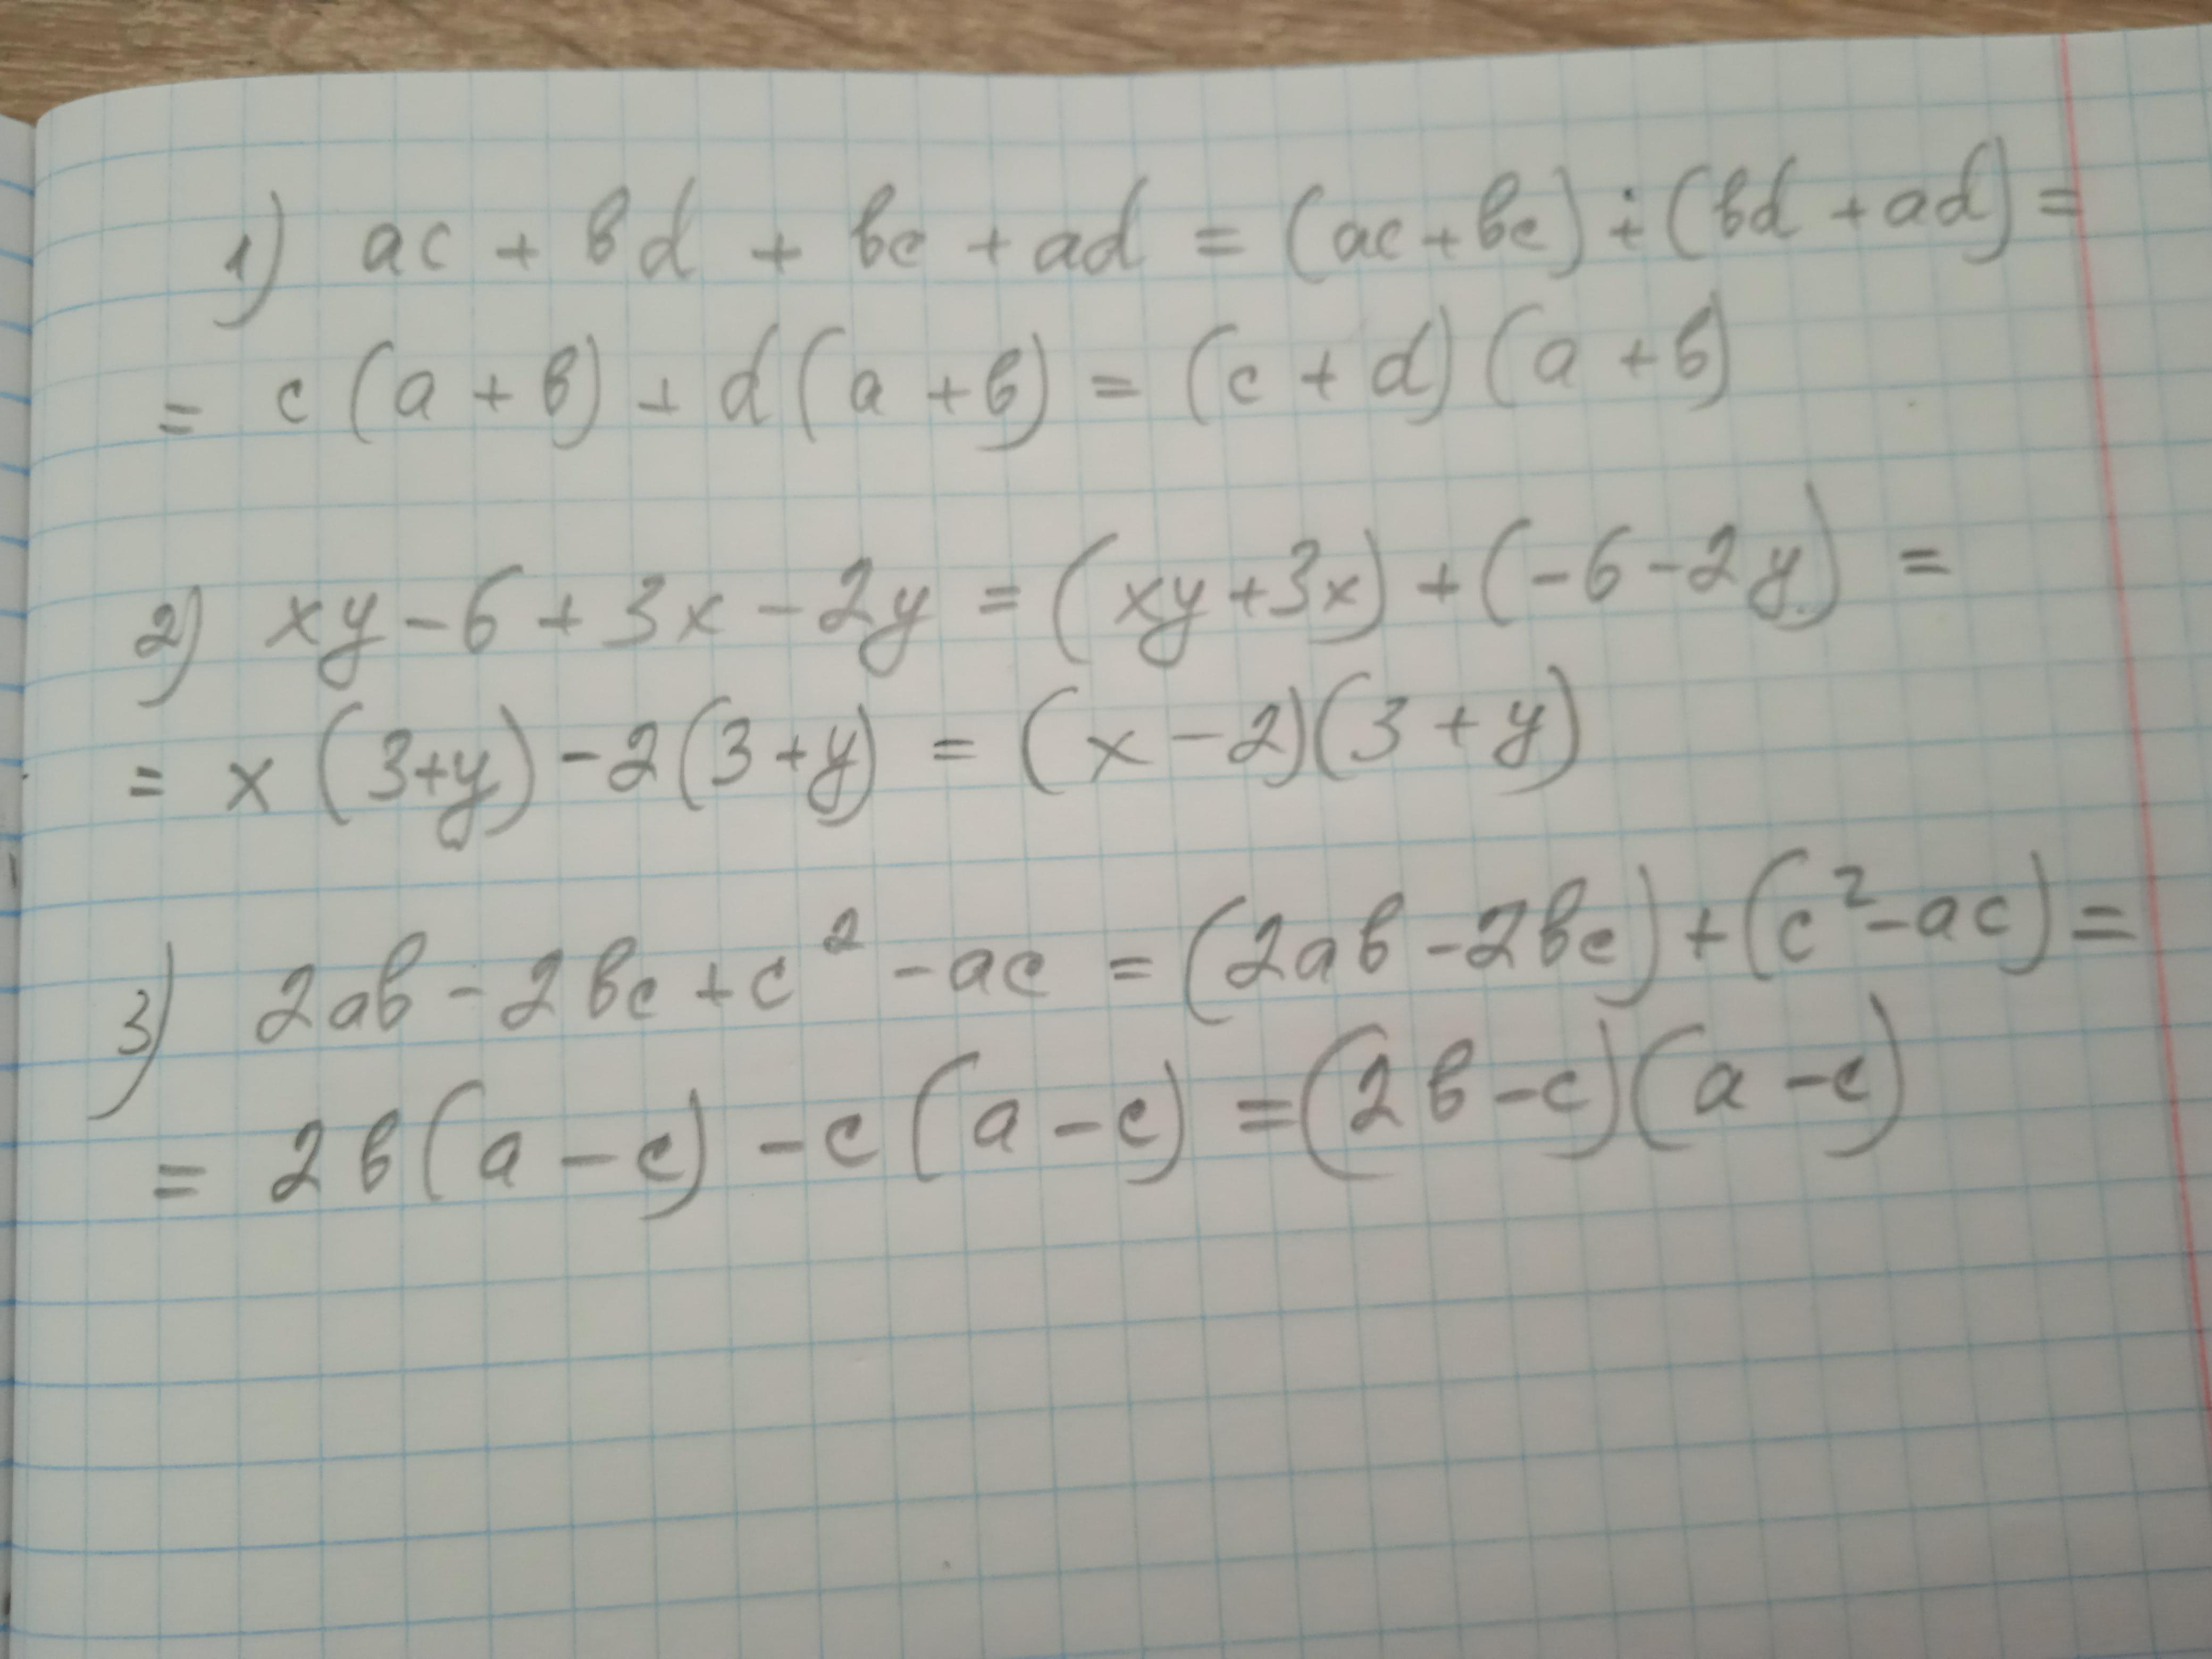 1) ac + bd + bc + ad = (ac + bc) + (bd + ad) =
= c (a + b) + d (a + b) = (c + d) (a + b)
2) xy - 6 + 3x - 2y = (xy + 3x) + (-6 - 2y) =
= x (3 + y) - 2 (3 + y) = (x - 2)(3 + y)
3) 2ab - 2bc + c² - ac = (2ab - 2bc) + (c² - ac) =
= 2b (a - c) - c (a - c) = (2b - c)(a - c)